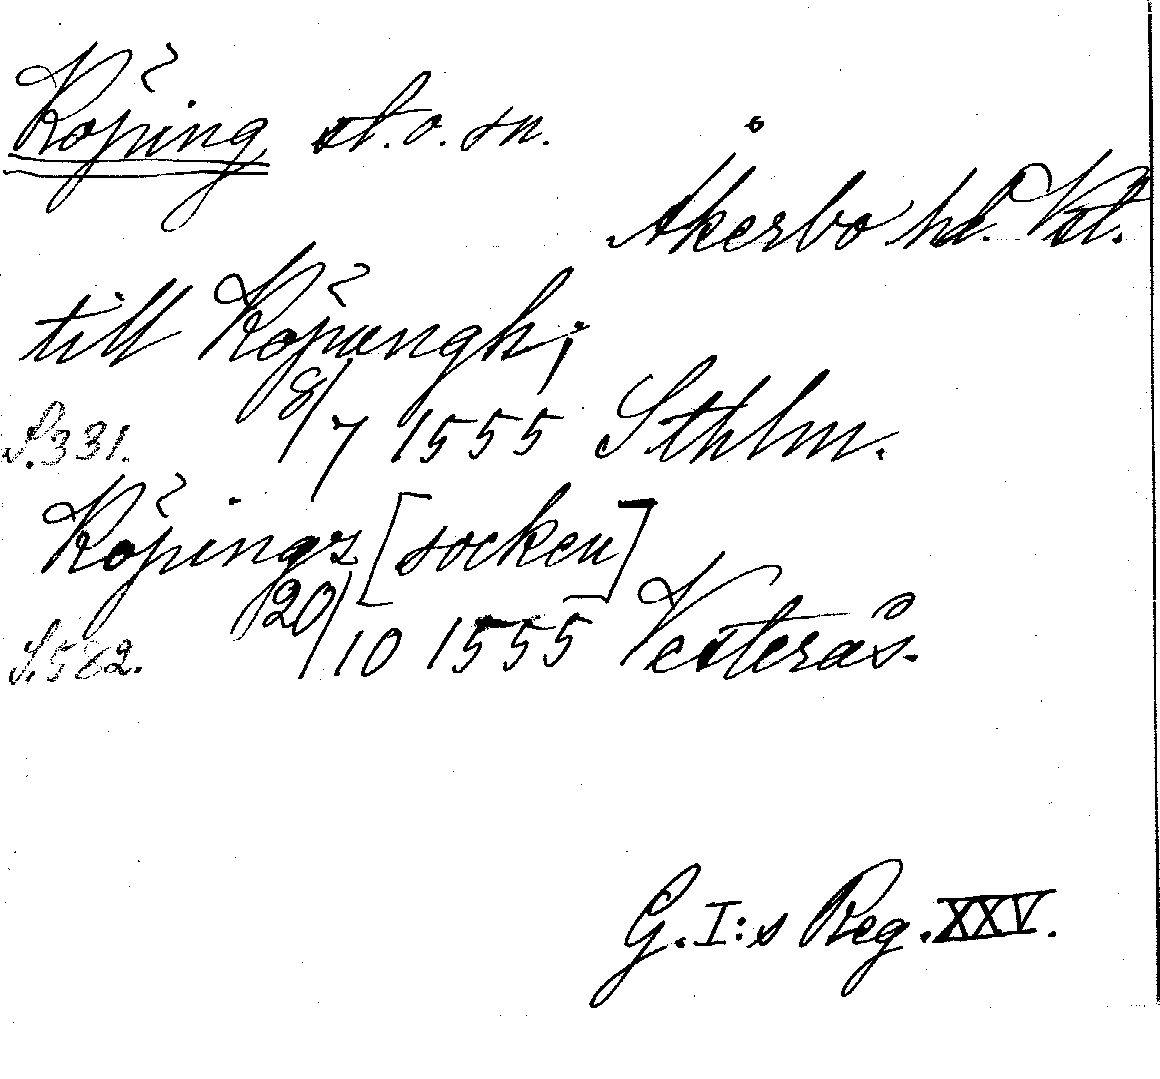 Köping st. o. sn.
Åkerbo hd. Vstl.
till Köpungh;
S. 331. 8/7 1555 Sthlm.
Köpings [socken]
S. 582. 20/10 1555 Vesterås.
G. I:s Reg. XXV.